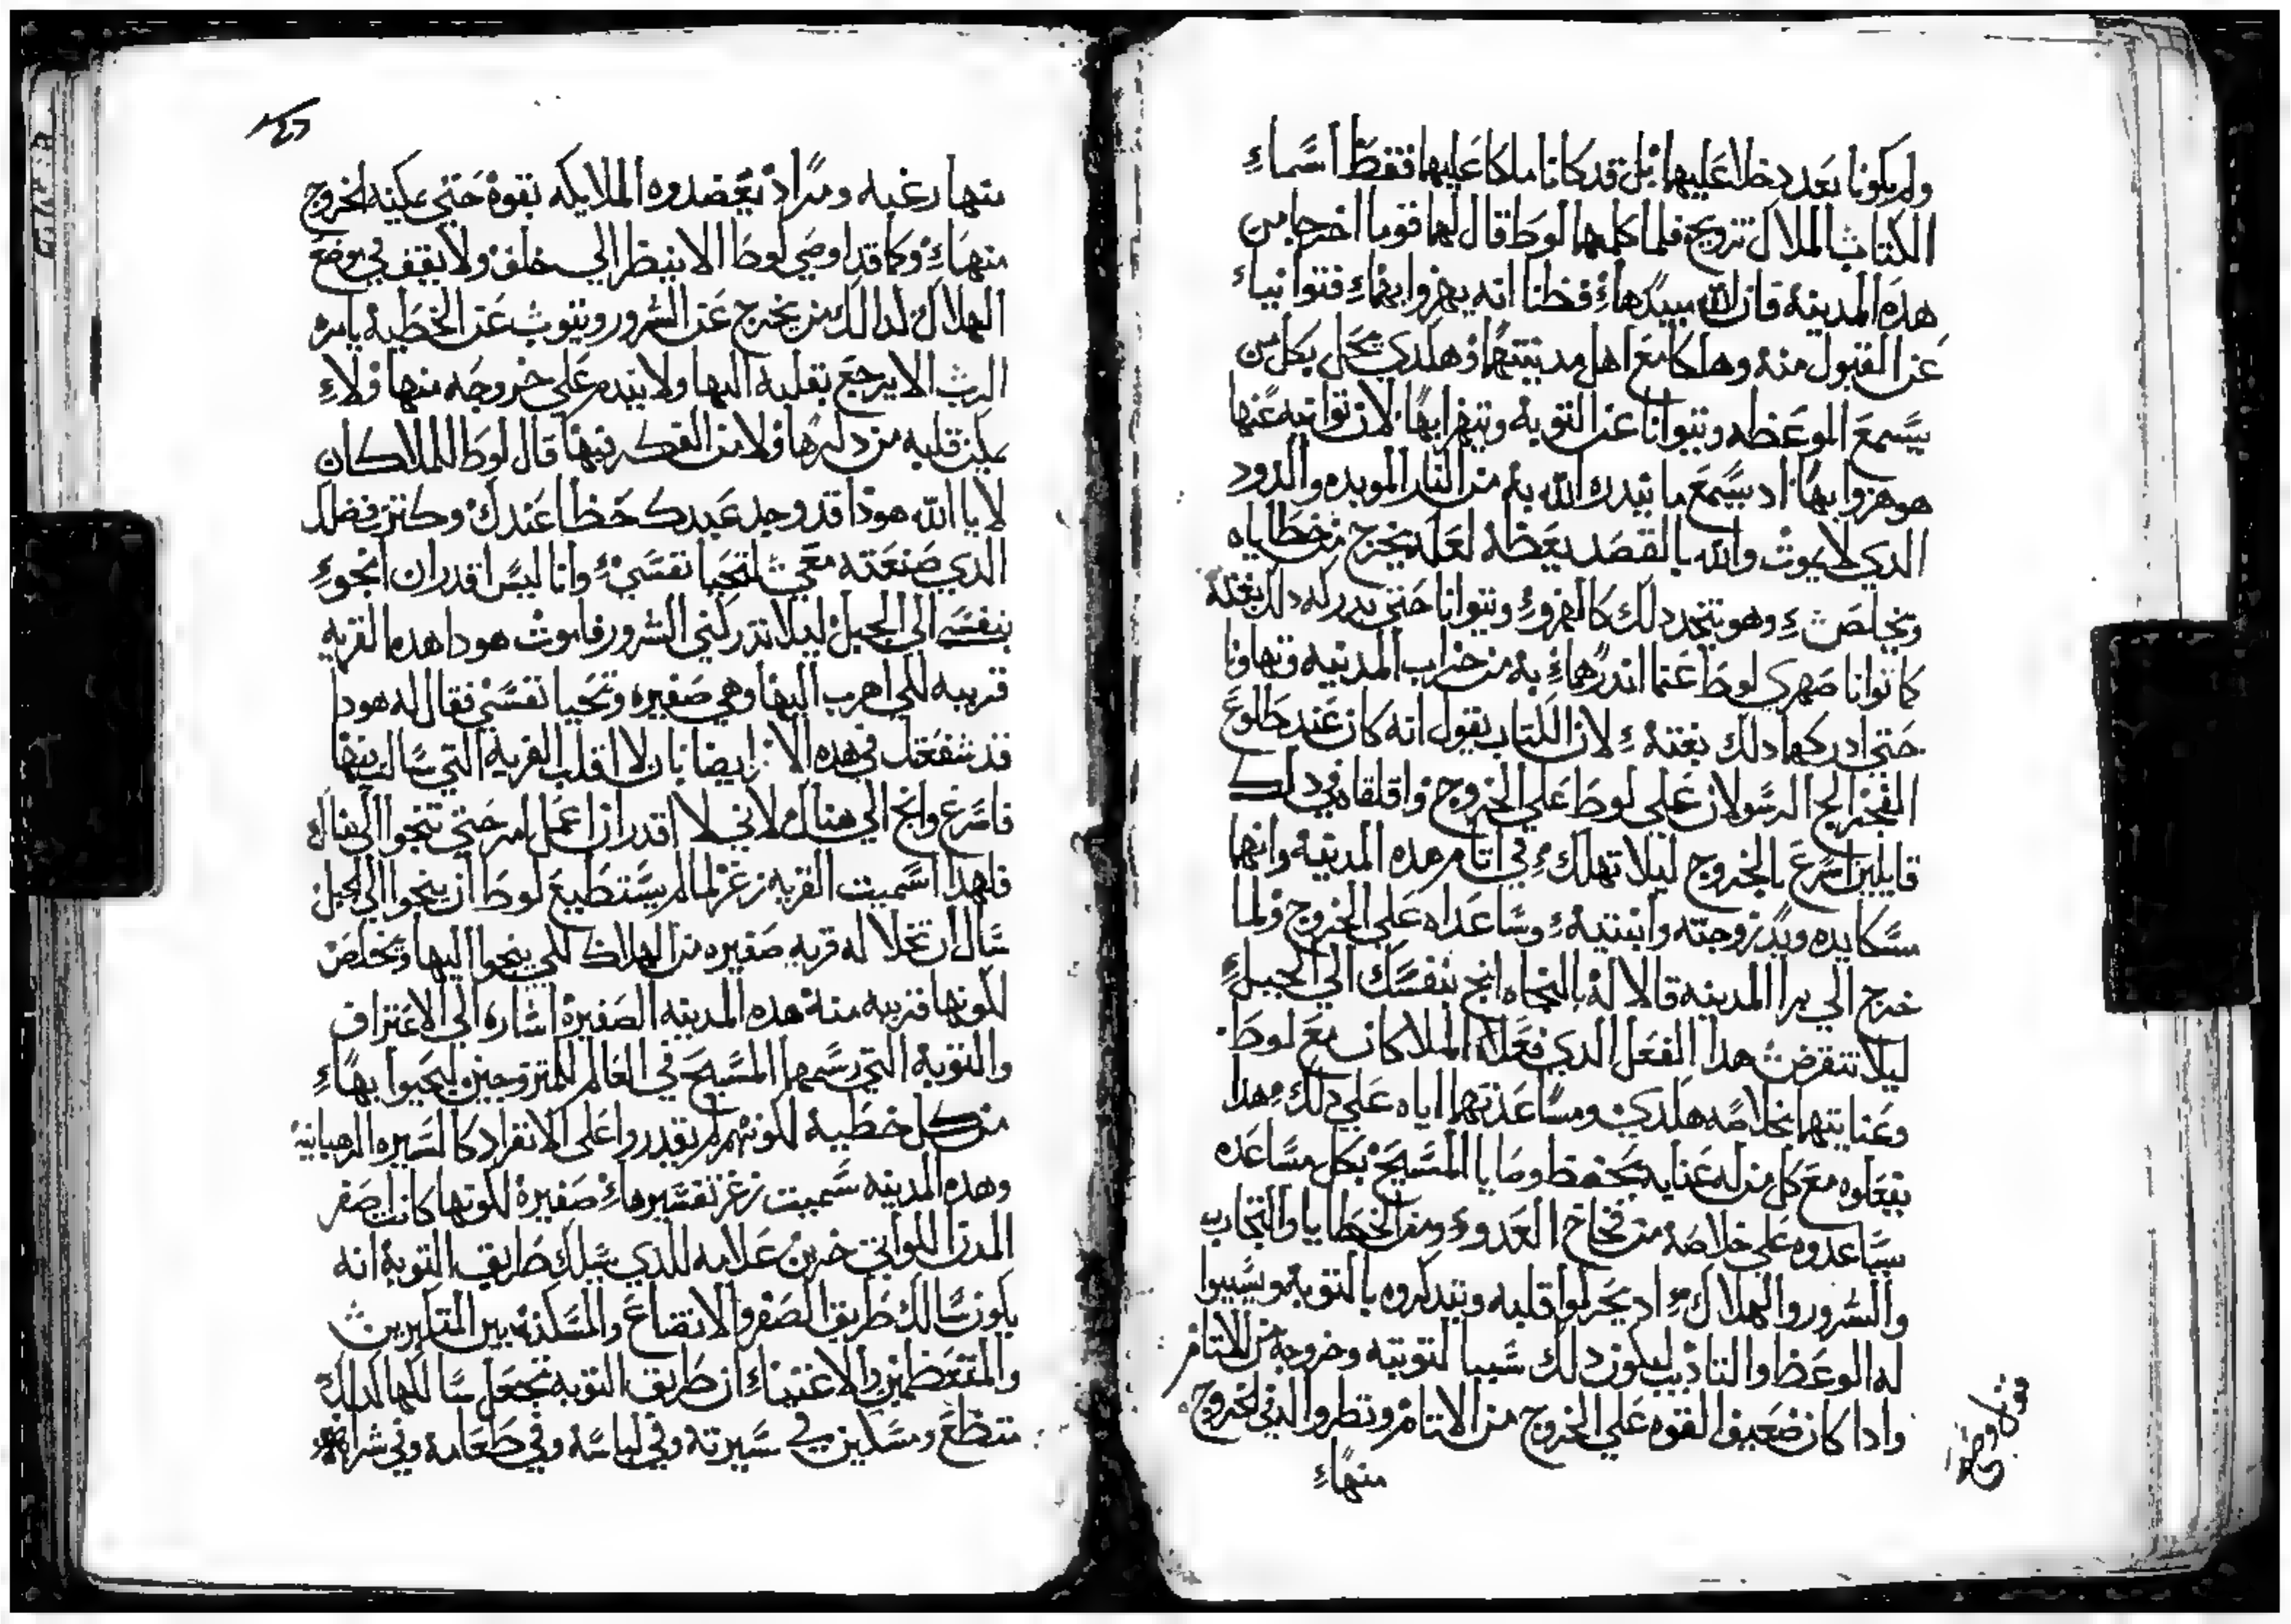 ولم يكونا بعد دخلا عليها بل قد كانا ملكا عليها فقط اسماء
الكتاب الملاك تزويج فلما كلمها لوط قال لها قوما اخرجا من
هذه المدينة فان الله مبيدها فظنا انه يهزوا بهما فتوانياء
عن القبول منه وهلكا مع اهل مدينتهما وهلدي يحل بكل من
يسمع الموعظه ويتوانا عن التوبة ويتهزا بها لان توانيه عنها
هو هزوا بها اد يسمع ما ينذرك الله به من النار الموبده والدود
الدي لا يموت والله بالقصد يعظه لعله يخرج من خطاياه
ويخلص وهو يتخد دلك كالهزو ويتوانا حتى يدركه دلك بغتة
كما توانا صهري لوط عما اندرهما به من خراب المدينه وتهاونا
حتى ادركهما دلك بغتة لان الكتاب يقول انه كان عند طلوع
الفجر الج الرسولان على لوط على الخروج واقلقاه في دلك
قايلين اسرع بالخروج ليلا تهلك في اتام هذه المدينة وانها
سكايده ويد زوجته وابنتيه وساعداه على الخروج ولما
خرج الي برا المدينه قالا له بالنجاه انج بنفسك الي الجبل
ليلا تنقرض هدا الفعل الدي فعلاه الملاكان مع لوط
وعنايتهما بخلاصه هلدي ومساعدتهما اياه على دلك هدا
يفعلوه مع كل من له عنايه بحفظ وصايا المسيح بكل مساعده
يساعدوه على خلاصه من فخاخ العدو ومن الخطايا والتجارب
والشرور والهلاك اد يحركوا قلبه ويتدكروه بالتوبة ويسببوا
له الوعظ والتاديب ليكون دلك سببا لتوبته وخروجه من الاتام
وادا كان ضعيف القوه على الخروج من الاتام ونظروا الدي الخروج
منهاء
منها رغبه ومراد يعضدوه الملايكه بقوه حتى يمكنه الخروج
منهاء وكما قد اوصي لوط الا ينظر الي خلف ولا يقف في موضع
الهلاك لدالك من يخرج عن الشرور ويتوب عن الخطيه يامره
الرب الا يرجع بقلبه اليها ولا يندم على خروجه منها ولاء
يمكن قلبه من دكرها ولا من الفكر فيها قال لوط للملاكان
لا يا الله هودا قد وجد عبدك حظا عندك وكنز فضلك
الدي صنعته معي لتحيا نفسي وانا ليس اقدر ان انجوء
بنفسي الي الجبل ليلا تدركني الشرور فاموت هودا هذه القريه
قريبه لكي اهرب اليها وهي صغيره وتحيا نفسي فقال له هودا
قد شفعتك في هده الان ايضا بان لا اقلب القرية التي سالت فيها
فاسرع وانج الي هناك لاني لا اقدر ان اعمل امر حتى تنجوا الي هناك
فلهدا اسميت القريه زغر لما لم يستطيع لوط ان ينجوا الي الجبل
سال ان تخلا له قريه صغيره من الهلاك لكي ينجوا اليها ويخلص
لكونها قريبه منه هده المدينه الصغيره اشاره الي الاعتراف
والتوبه التي رسمها المسيح في العالم للمتزوجين ليحيوا بهاء
من كل خطيه لكونهم لم يقدروا على الانفراد كالسيره الرهبانيه
وهده المدينه سميت زغر تفسيرها صغيرة لكونها كانت اصغر
المدن اللواتي خربن علامه للدي يسلك طريق التوبه انه
يكون سالك طريق الصغر والاتضاع والمسكنه بين المتكبرين
والمتعظمين والاغنياء ان طريق التوبه تجعل سالكها لدلك
متضع ومسكين في سيرته وفي لباسه وفي طعامه وفي شرابه